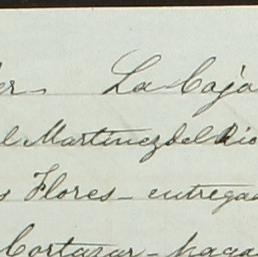 er- La Caja
l Martinez del Rio
s Flores - entrega
Cortazar - paga